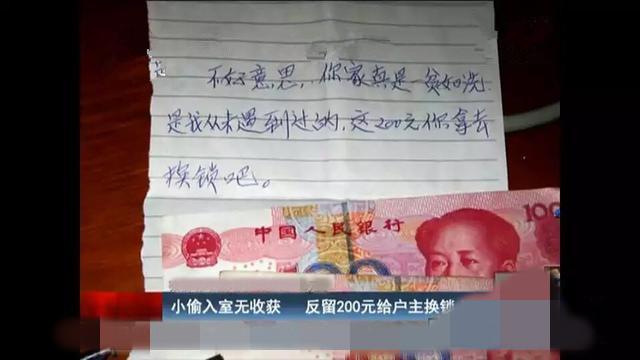 不好意思，你家真是一贫如洗，
是我从未遇到过的，这200元你拿去
换锁吧。
中国人民银行
100
小偷入室无收获 反留200元给户主换锁